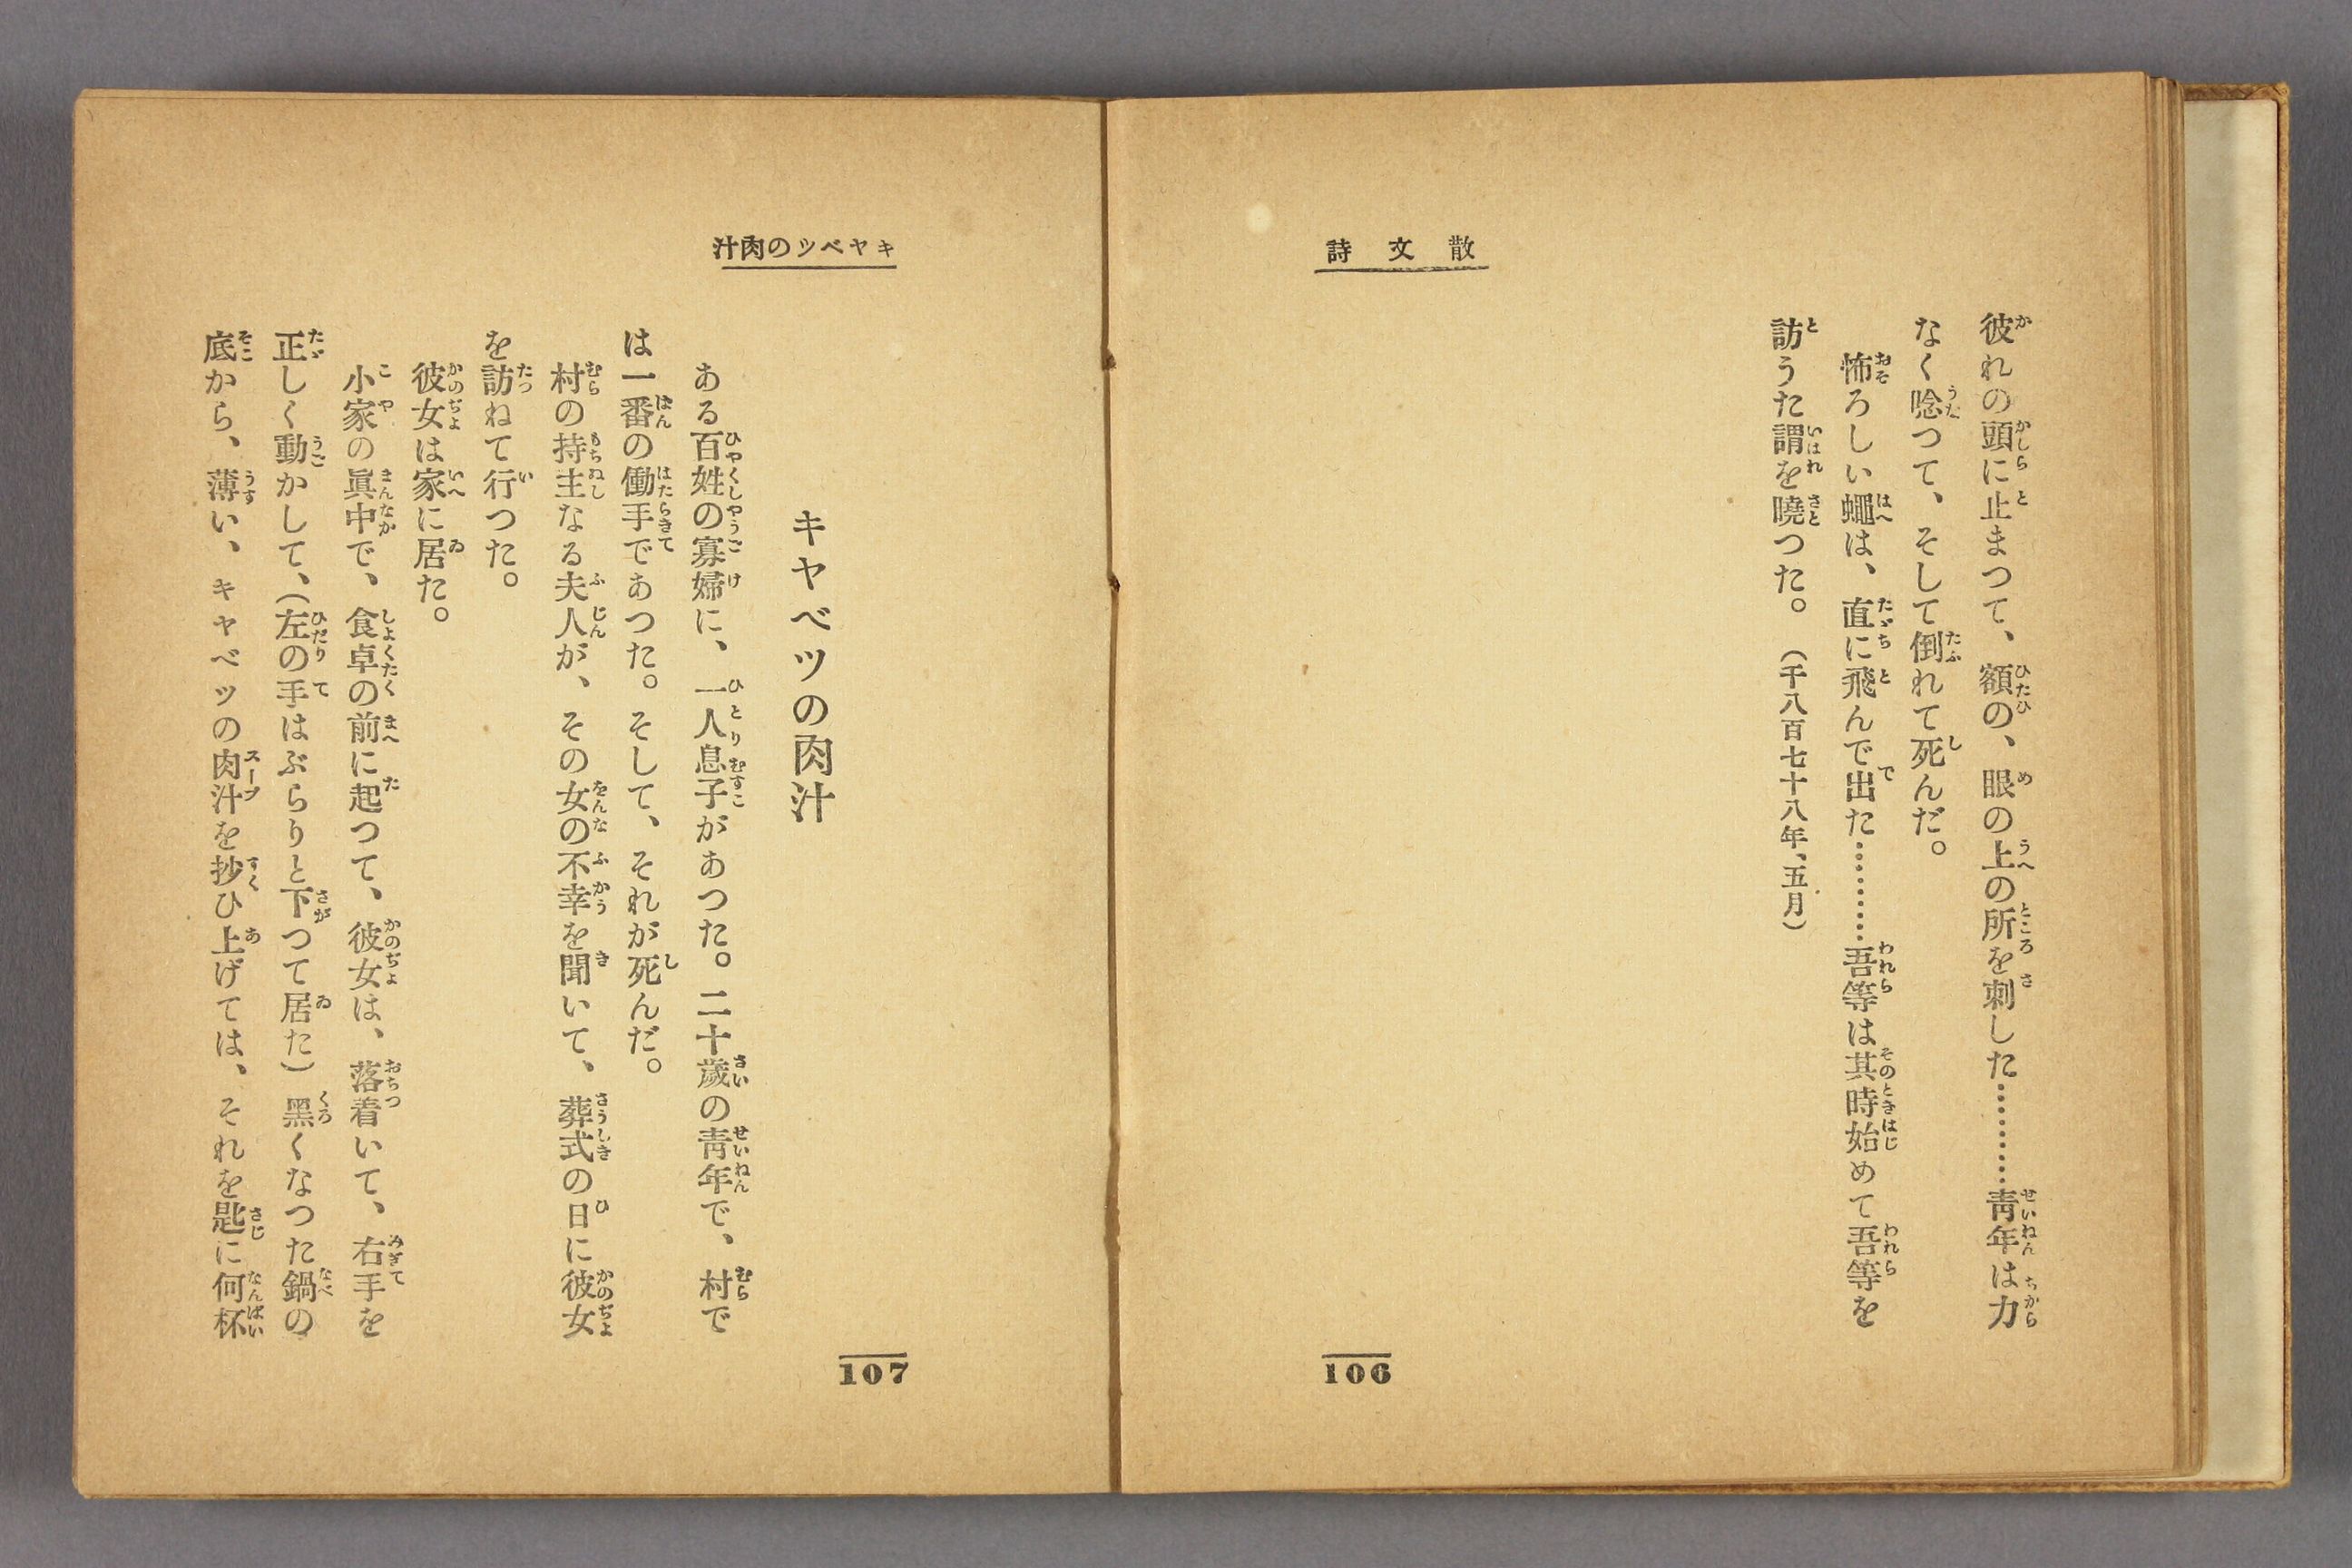 散文詩
彼れの頭に止まつて、額の、眼の上の所を刺した…………靑年は力
なく唸つて、そして倒れて死んだ。
怖ろしい蠅は、直に飛んで出た…………吾等は其時始めて吾等を
訪うた謂を曉つた。（千八百七十八年、五月）
106
キヤベツの肉汁
キヤベツの肉汁
ある百姓の寡婦に、一人息子があつた。二十歲の靑年で、村で
は一番の働手であつた。そして、それが死んだ。
村の持主なる夫人が、その女の不幸を聞いて、葬式の日に彼女
を訪ねて行つた。
彼女は家に居た。
小家の眞中で、食卓の前に起つて、彼女は、落着いて、右手を
正しく動かして、（左の手はぶらりと下つて居た）黑くなつた鍋の
底から、薄い、キャベツの肉汁を抄ひ上げては、それを匙に何杯
107